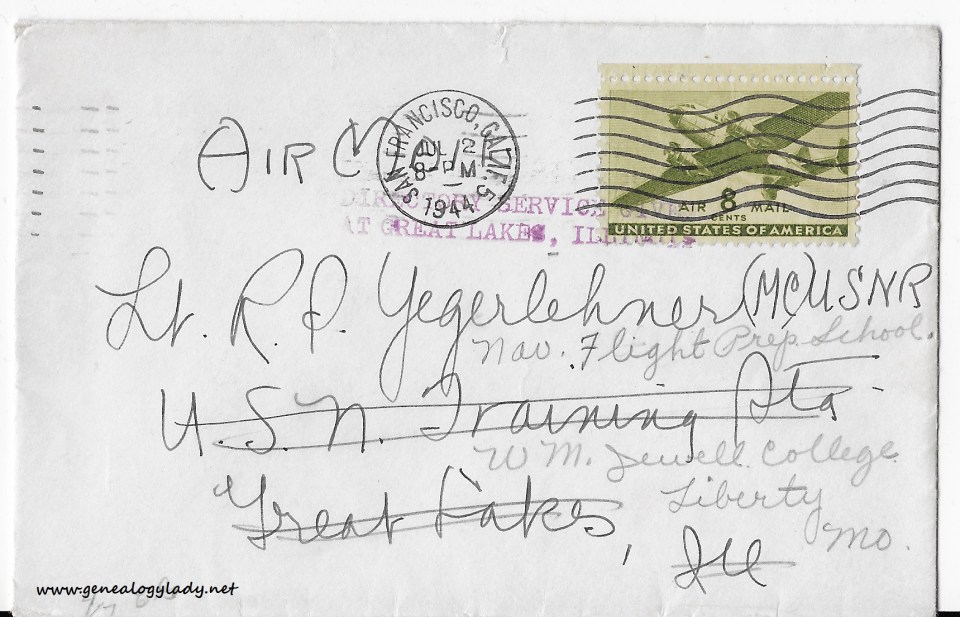 SAN FRANCISCO, CALIF. 5
JUL 2
8-PM
1944
AIR MAIL
8
CENTS
UNITED STATES OF AMERICA
AIR
DIRECTORY SERVICE
AT GREAT LAKES, ILLINOIS
Lt. R. P. Yegerlehner (MC) USNR
Nav. Flight Prep. School.
U.S.N. Training Sta
Wm. Jewell College
Great Lakes, Ill
Liberty
Mo.
www.genealogylady.net